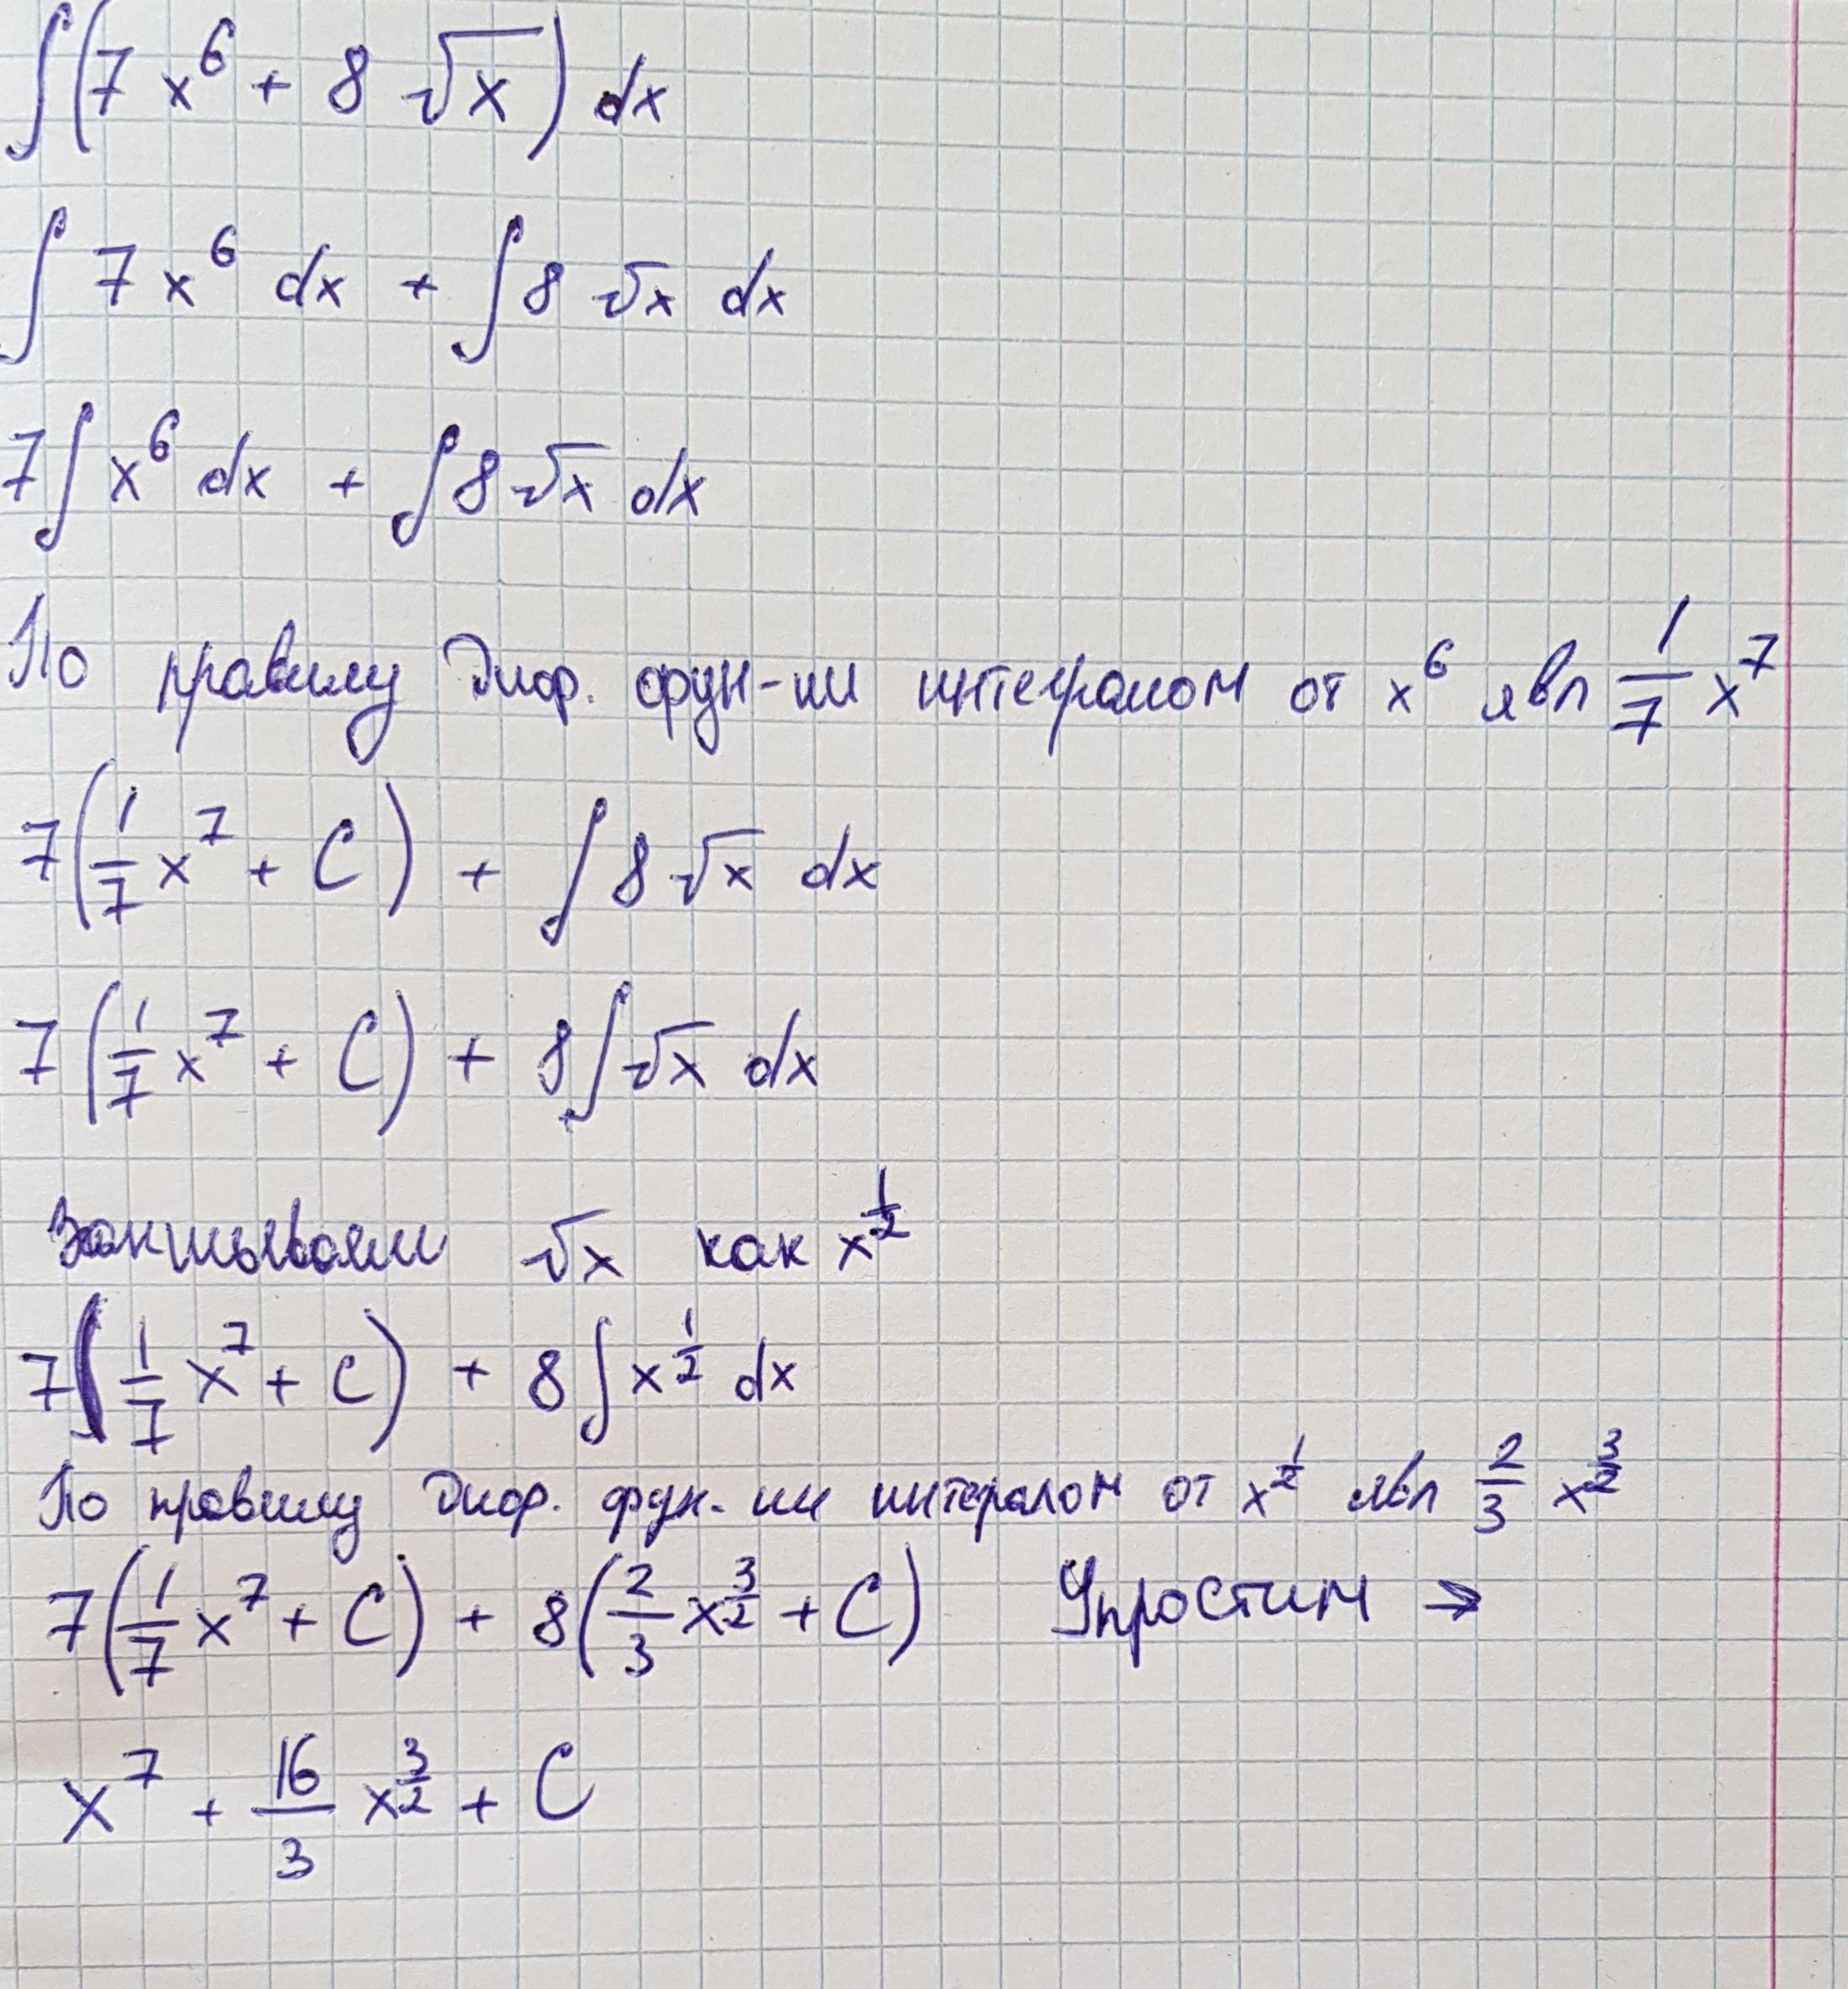 ∫(7x⁶ + 8√x) dx
∫ 7x⁶ dx + ∫ 8√x dx
7∫ x⁶ dx + ∫ 8√x dx
По правилу диф. фун-ии интегралом от x⁶ явл 1/7 x⁷
7(1/7 x⁷ + C) + ∫ 8√x dx
7(1/7 x⁷ + C) + 8∫√x dx
√x как x^(1/2)
7(1/7 x⁷ + C) + 8∫ x^(1/2) dx
По правилу диф. фун-ии интералом от x^(1/2) явл 2/3 x^(3/2)
7(1/7 x⁷ + C) + 8(2/3 x^(3/2) + C) Упростим →
x⁷ + 16/3 x^(3/2) + C